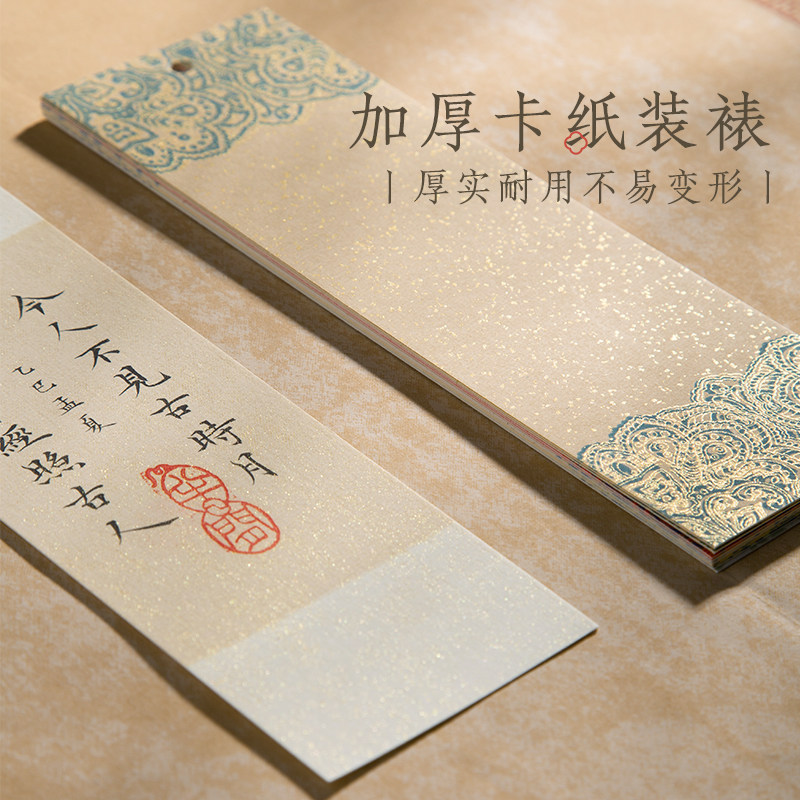 加厚卡纸装裱
厚实耐用不易变形
今人不見古時月
經照古人
乙巳孟夏